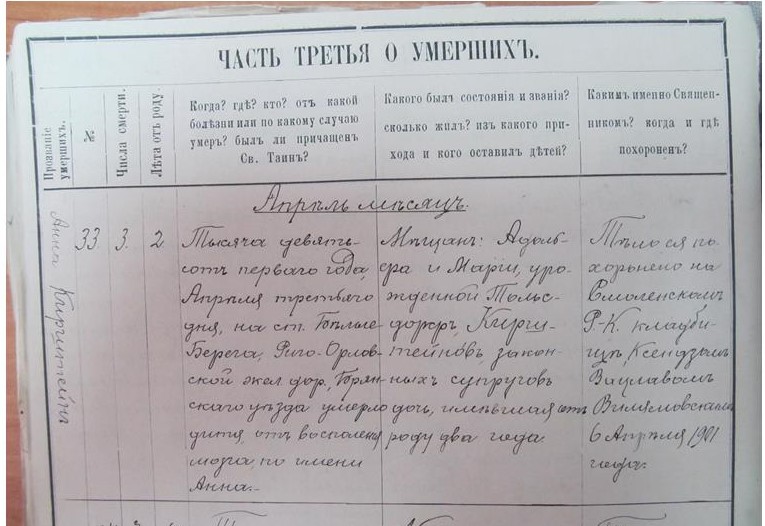 ЧАСТЬ ТРЕТЬЯ О УМЕРШИХЪ.
Прозваніе умершихъ.
№
Числа смерти.
Лѣта отъ роду.
Когда? гдѣ? кто? отъ какой
болѣзни или по какому случаю
умеръ? былъ ли причащенъ
Св. Таинъ?
Какого былъ состоянія и званія?
сколько жилъ? изъ какого при-
хода и кого оставилъ дѣтей?
Какимъ именно Священ-
никомъ? когда и гдѣ
похороненъ?
Апрѣль мѣсяцъ.
Анна Кирштейнъ
33.
3.
2.
Тысяча девять-
сотъ перваго года,
Апрѣля третьяго
дня, на ст. Бѣлые
Берега, Риго-Орлов-
ской жел. дор., Брян-
скаго уѣзда умерло
дитя, отъ воспаленія
мозга, по имени
Анна.-
Мѣщанъ: Адоль-
фа и Маріи, уро-
жденной Тольс-
дорфъ, Кирш-
тейновъ, закон-
ныхъ супруговъ
дочь, имѣвшая отъ
роду два года.
Тѣло ея по-
хоронено на
Смоленскомъ
Р-К. кладби-
щѣ, Ксендзомъ
Вацлавомъ
6 Апрѣля 1901
года.